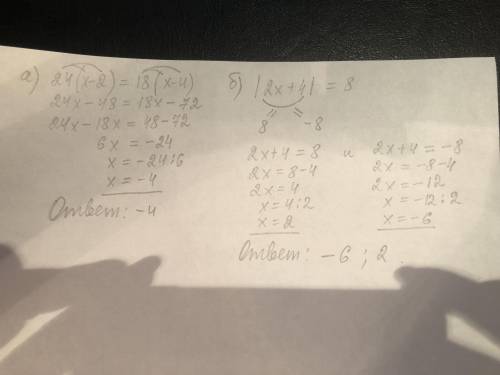 а) 24(x-2) = 18(x-4)
24x-48 = 18x-72
24x-18x = 48-72
6x = -24
x = -24:6
x = -4
Ответ: -4
б) |2x+4| = 8
8 -8
2x+4 = 8 и
2x = 8-4
2x = 4
x = 4:2
x = 2
2x+4 = -8
2x = -8-4
2x = -12
x = -12:2
x = -6
Ответ: -6; 2.